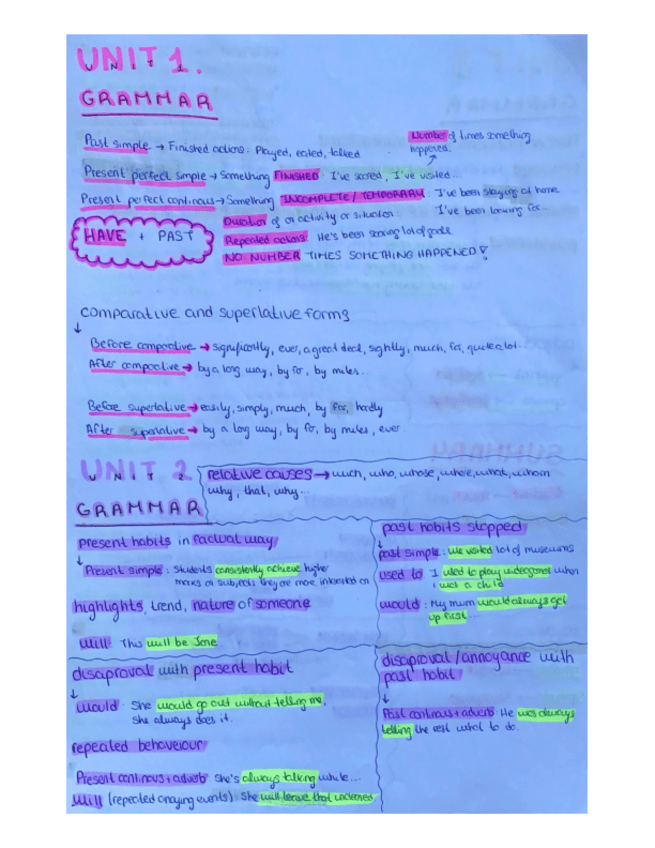 UNIT 1.
GRAMMAR
Past simple → Finished actions: Played, eated, talked
Number of times something happened.
Present perfect simple → Something FINISHED: I've scored, I've visited...
Present perfect continous → Something INCOMPLETE / TEMPORARY: I've been staying at home
I've been looking for...
HAVE + PAST
Duration of an activity or situation
Repeated actions: He's been scoring lot of goals
NO NUMBER TIMES SOMETHING HAPPENED!
comparative and superlative forms
↓
Before comparative → significantly, ever, a great deal, slightly, much, far, quite a lot...
After comparative → by a long way, by far, by miles...
Before superlative → easily, simply, much, by far, hardly
After superlative → by a long way, by far, by miles, ever
UNIT 2
GRAMMAR
relative causes → wich, who, whose, where, what, whom
why, that, why...
present habits in factual way
↓
Present simple: Students consistently achieve higher
marks at subjects they are more interested on
highlights, trend, nature of someone
Will: This will be Jane
past habits stopped
↓
past simple: We visited lot of museums
used to I used to play underground when
I was a child
would: My mum would always get
up first...
disaproval with present habit
↓
would: She would go out without telling me,
she always does it.
repeated behaveiour
Present continous + adverb: She's always talking while...
Will (repeated anoying events): She will leave that
disaproval/annoyance with
past habit
↓
Past continous + adverb: He was always
telling the rest what to do.